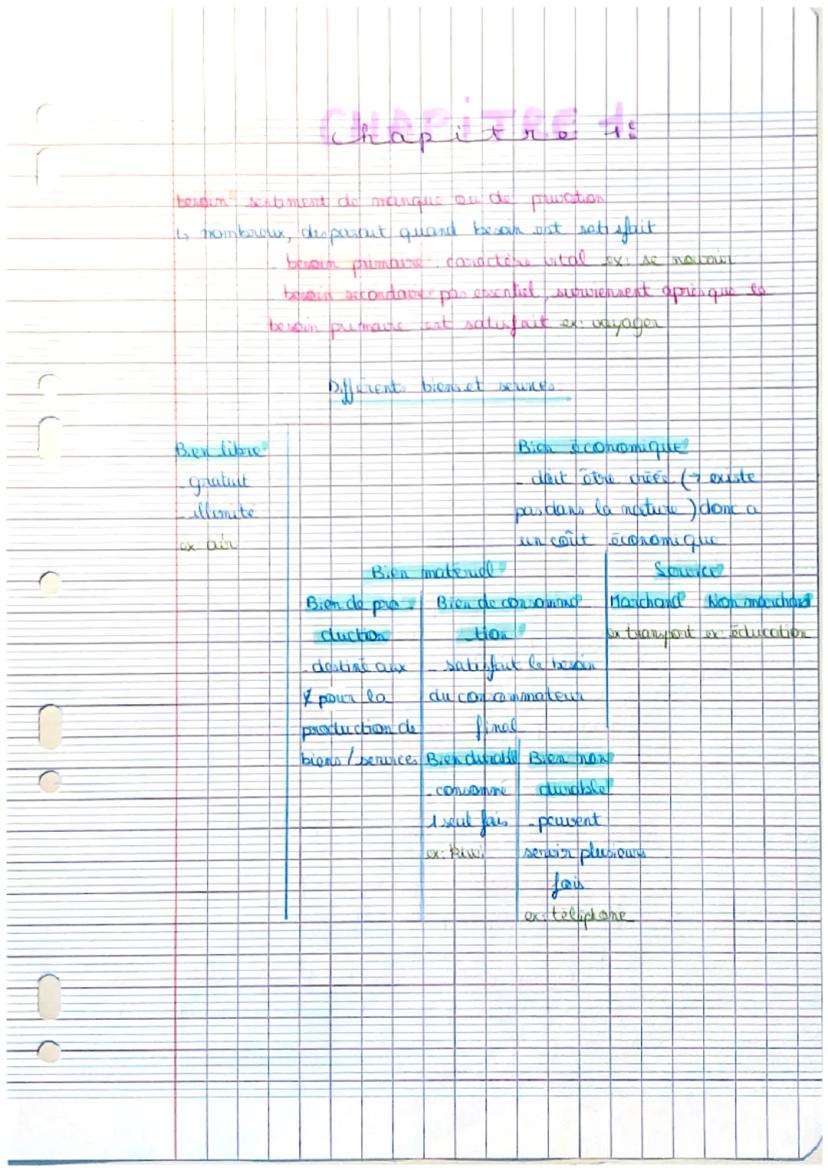 CHAPITRE 1:
chapitre 1:
besoin: sentiment de manque ou de privation
↳ nombreux, disparait quand besoin est satisfait
- besoin primaire: caractère vital ex: se nourrir
- besoin secondaire: pas essentiel, surviennent après que le
besoin primaire est satisfait ex: voyager
Différents biens et services
Bien libre
- gratuit
- illimité
ex: air
Bien économique
- doit être créée (→ existe
pas dans la nature) donc a
un coût économique
Bien matériel
Bien de pro-
duction
- destiné aux
pour la
production de
biens/services
Bien de consomma-
tion
- satisfait le besoin
du consommateur
final
Bien durable
- consommé
1 seul fois
ex: kiwi
Bien non
durable
- peuvent
servir plusieurs
fois
ex: téléphone
Service
Marchand
ex: transport
Non marchand
ex: éducation